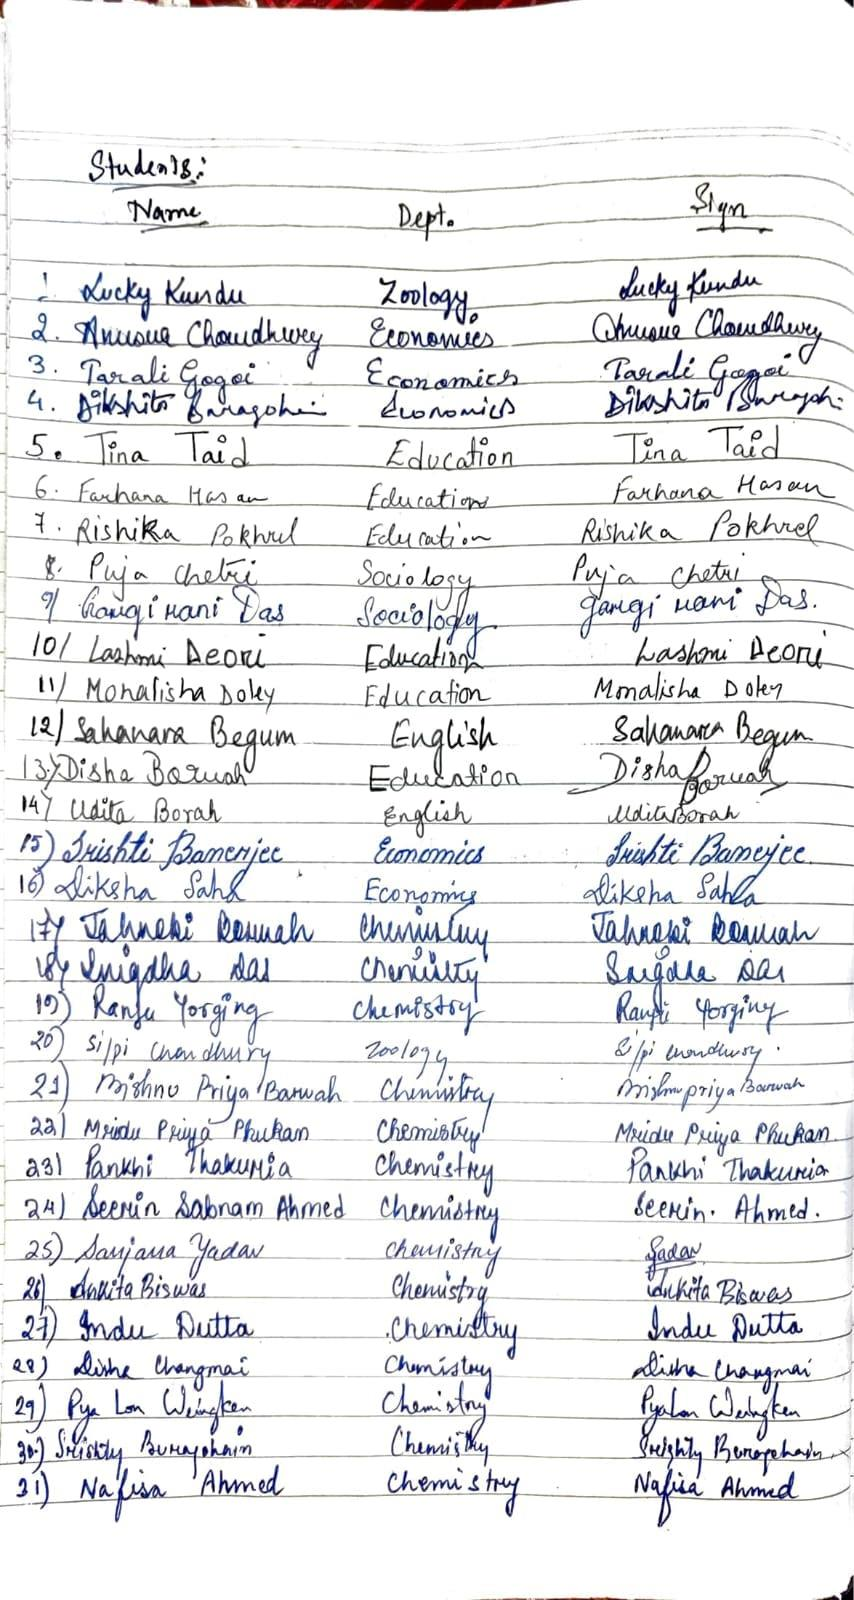 Students:
Name Dept. Sign
1. Lucky Kundu Zoology Lucky Kundu
2. Anusua Chowdhury Economics Anusua Chowdhury
3. Parali Gogoi Economics Parali Gogoi
4. Dikshita Economics Dikshita
5. Tina Taid Education Tina Taid
6. Farhana Hasan Education Farhana Hasan
7. Rishika Pokhrel Education Rishika Pokhrel
8. Puja Chetri Sociology Puja Chetri
9/ Gargi Mani Das Sociology Gargi Mani Das.
10/ Lashmi Deori Education Lashmi Deori
11/ Monalisha Doley Education Monalisha Doley
12/ Sahanara Begum English Sahanara Begum
13/ Disha Boruah Education Disha Boruah
14/ Udita Borah English Udita Borah
15) Srishti Banerjee Economics Srishti Banerjee
16) Diksha Saha Economics Diksha Saha
17/ Jahnabi Chemistry Jahnabi
18/ Snigdha Das Chemistry Snigdha Das
19) Ranju Yorging Chemistry Yorging
20) Silpi Choudhury Zoology Silpi Choudhury.
21) Bishnu Priya Barwah Chemistry Bishnupriya Barwah
22) Mridu Priya Phukan Chemistry Mridu Priya Phukan
23) Pankhi Thakuria Chemistry Pankhi Thakuria
24) Seerin Sabnam Ahmed Chemistry Seerin. Ahmed.
25) Sanjana Yadav Chemistry Yadav
26) Ankita Biswas Chemistry Ankita Biswas
27) Indu Dutta Chemistry Indu Dutta
28) Disha Changmai Chemistry Disha Changmai
29) Pya Lon Weingken Chemistry Pyalon Weingken
30) Srishty Buragohain Chemistry Srishty Buragohain
31) Nafisa Ahmed Chemistry Nafisa Ahmed